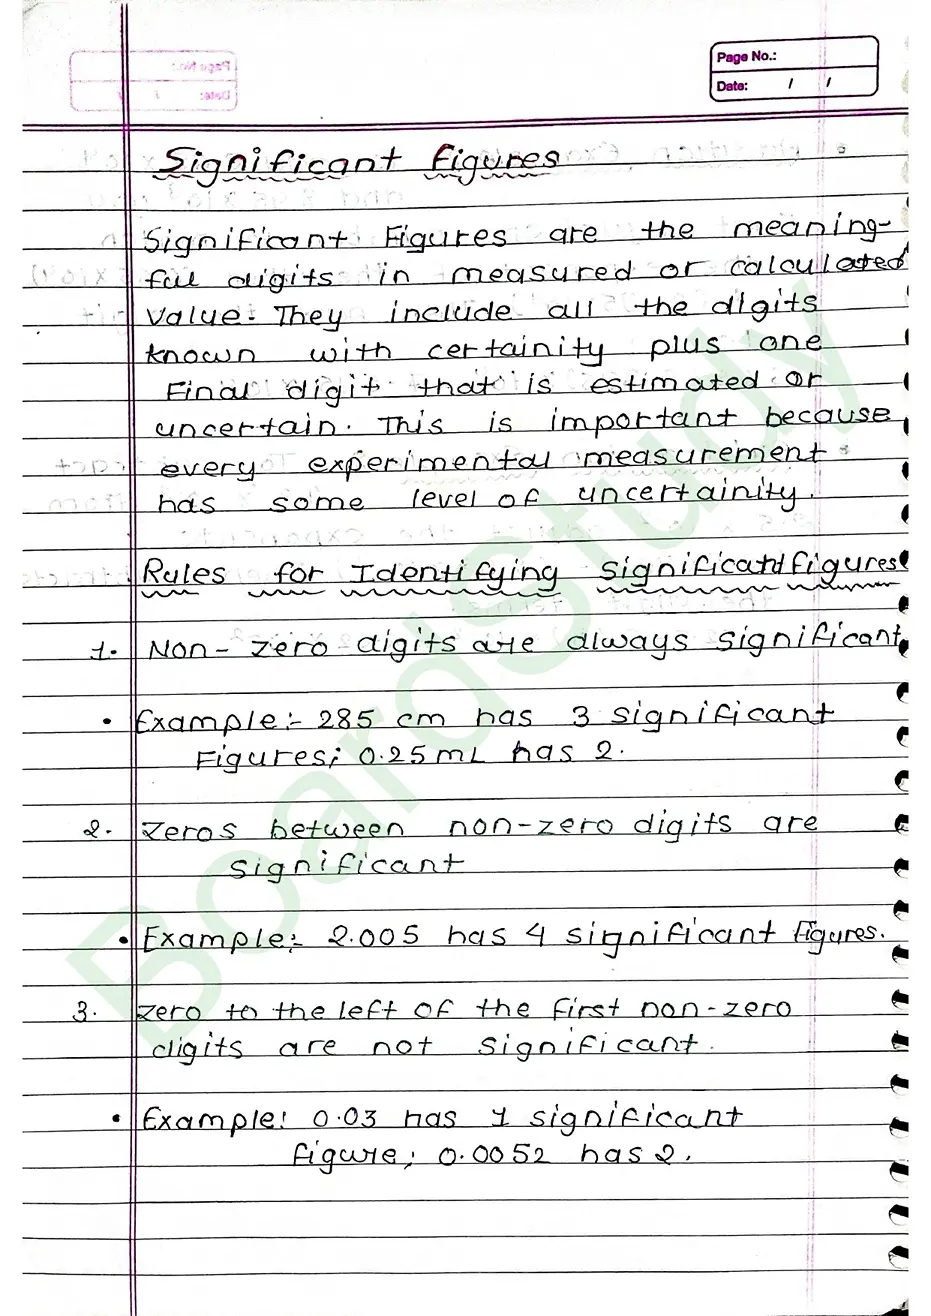 Page No.:
Date: / /
Significant Figures
Significant Figures are the meaning-
ful digits in measured or calculated
Value. They include all the digits
known with certainity plus one
Final digit that is estimated or
uncertain. This is important because
every experimental measurement
has some level of uncertainity.
Rules for Identifying significant figures
1. Non-zero digits are always significant
• Example:- 285 cm has 3 significant
Figures; 0.25 mL has 2.
2. Zeros between non-zero digits are
significant
• Example:- 2.005 has 4 significant figures.
3. Zero to the left of the first non-zero
digits are not significant.
• Example: 0.03 has 1 significant
figure; 0.0052 has 2.
BoardStudy